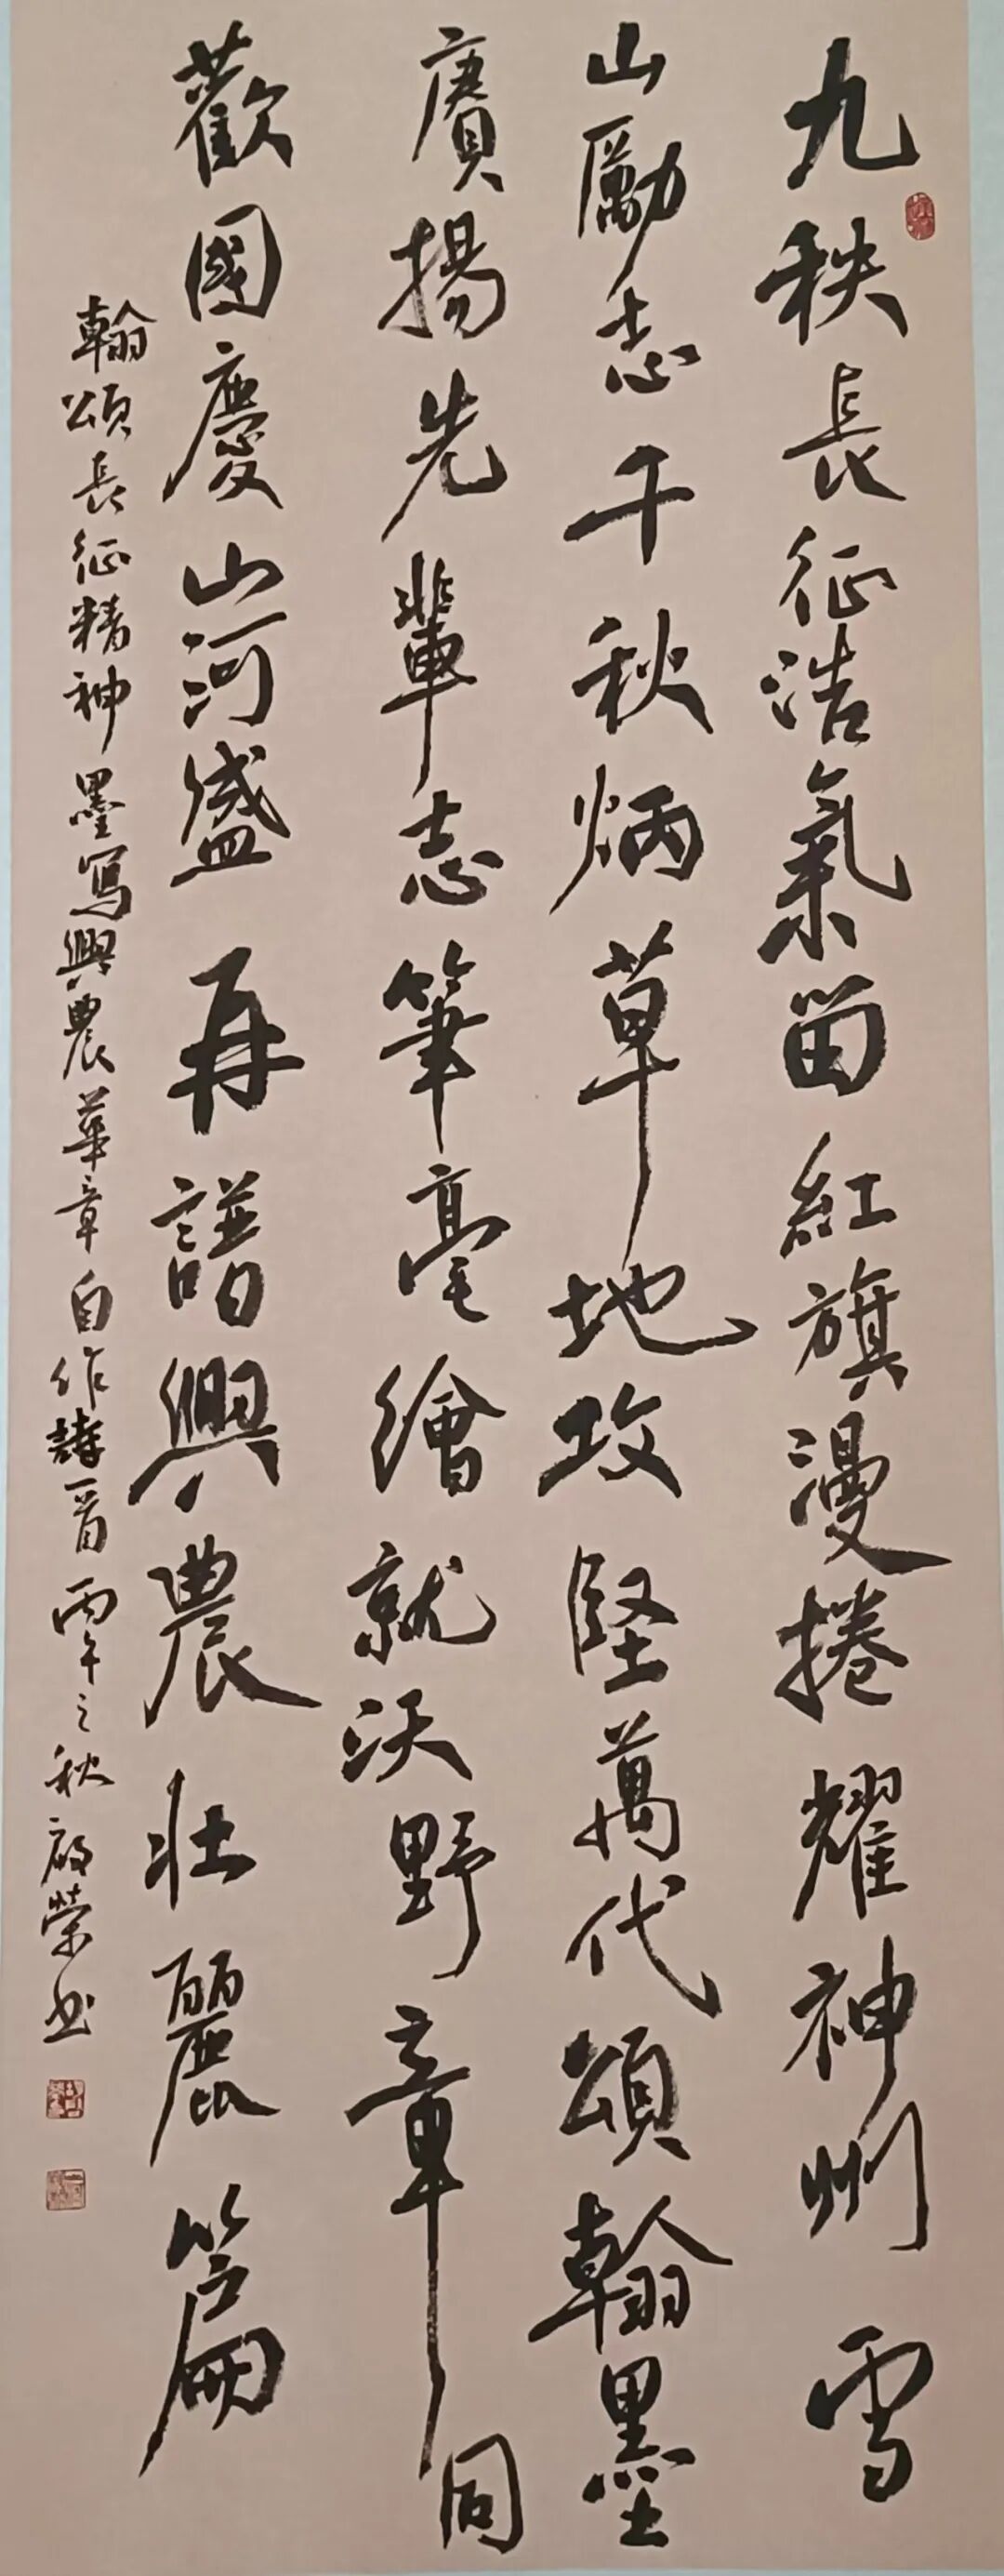 九秩長征浩氣留紅旗漫捲耀神州雪
山勵志千秋炳草地攻堅萬代頌翰墨
賡揚先輩志筆毫繪就沃野章同
歡國慶山河盛再譜興農壯麗篇
翰頌長征精神墨寫興農華章自作詩一首丙午之秋啟榮书